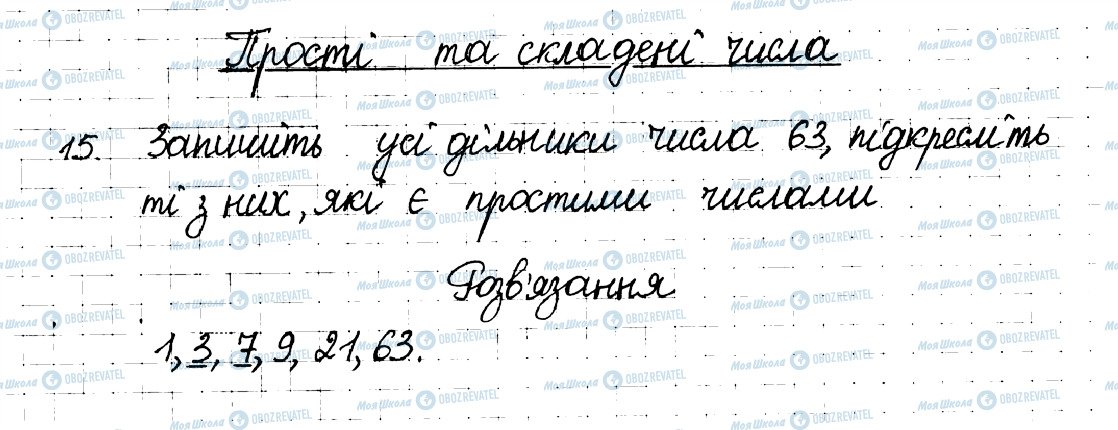 Прості та складені числа
15. Запишіть усі дільники числа 63, підкресліть
ті з них, які є простими числами
Розв'язання
1, 3, 7, 9, 21, 63.